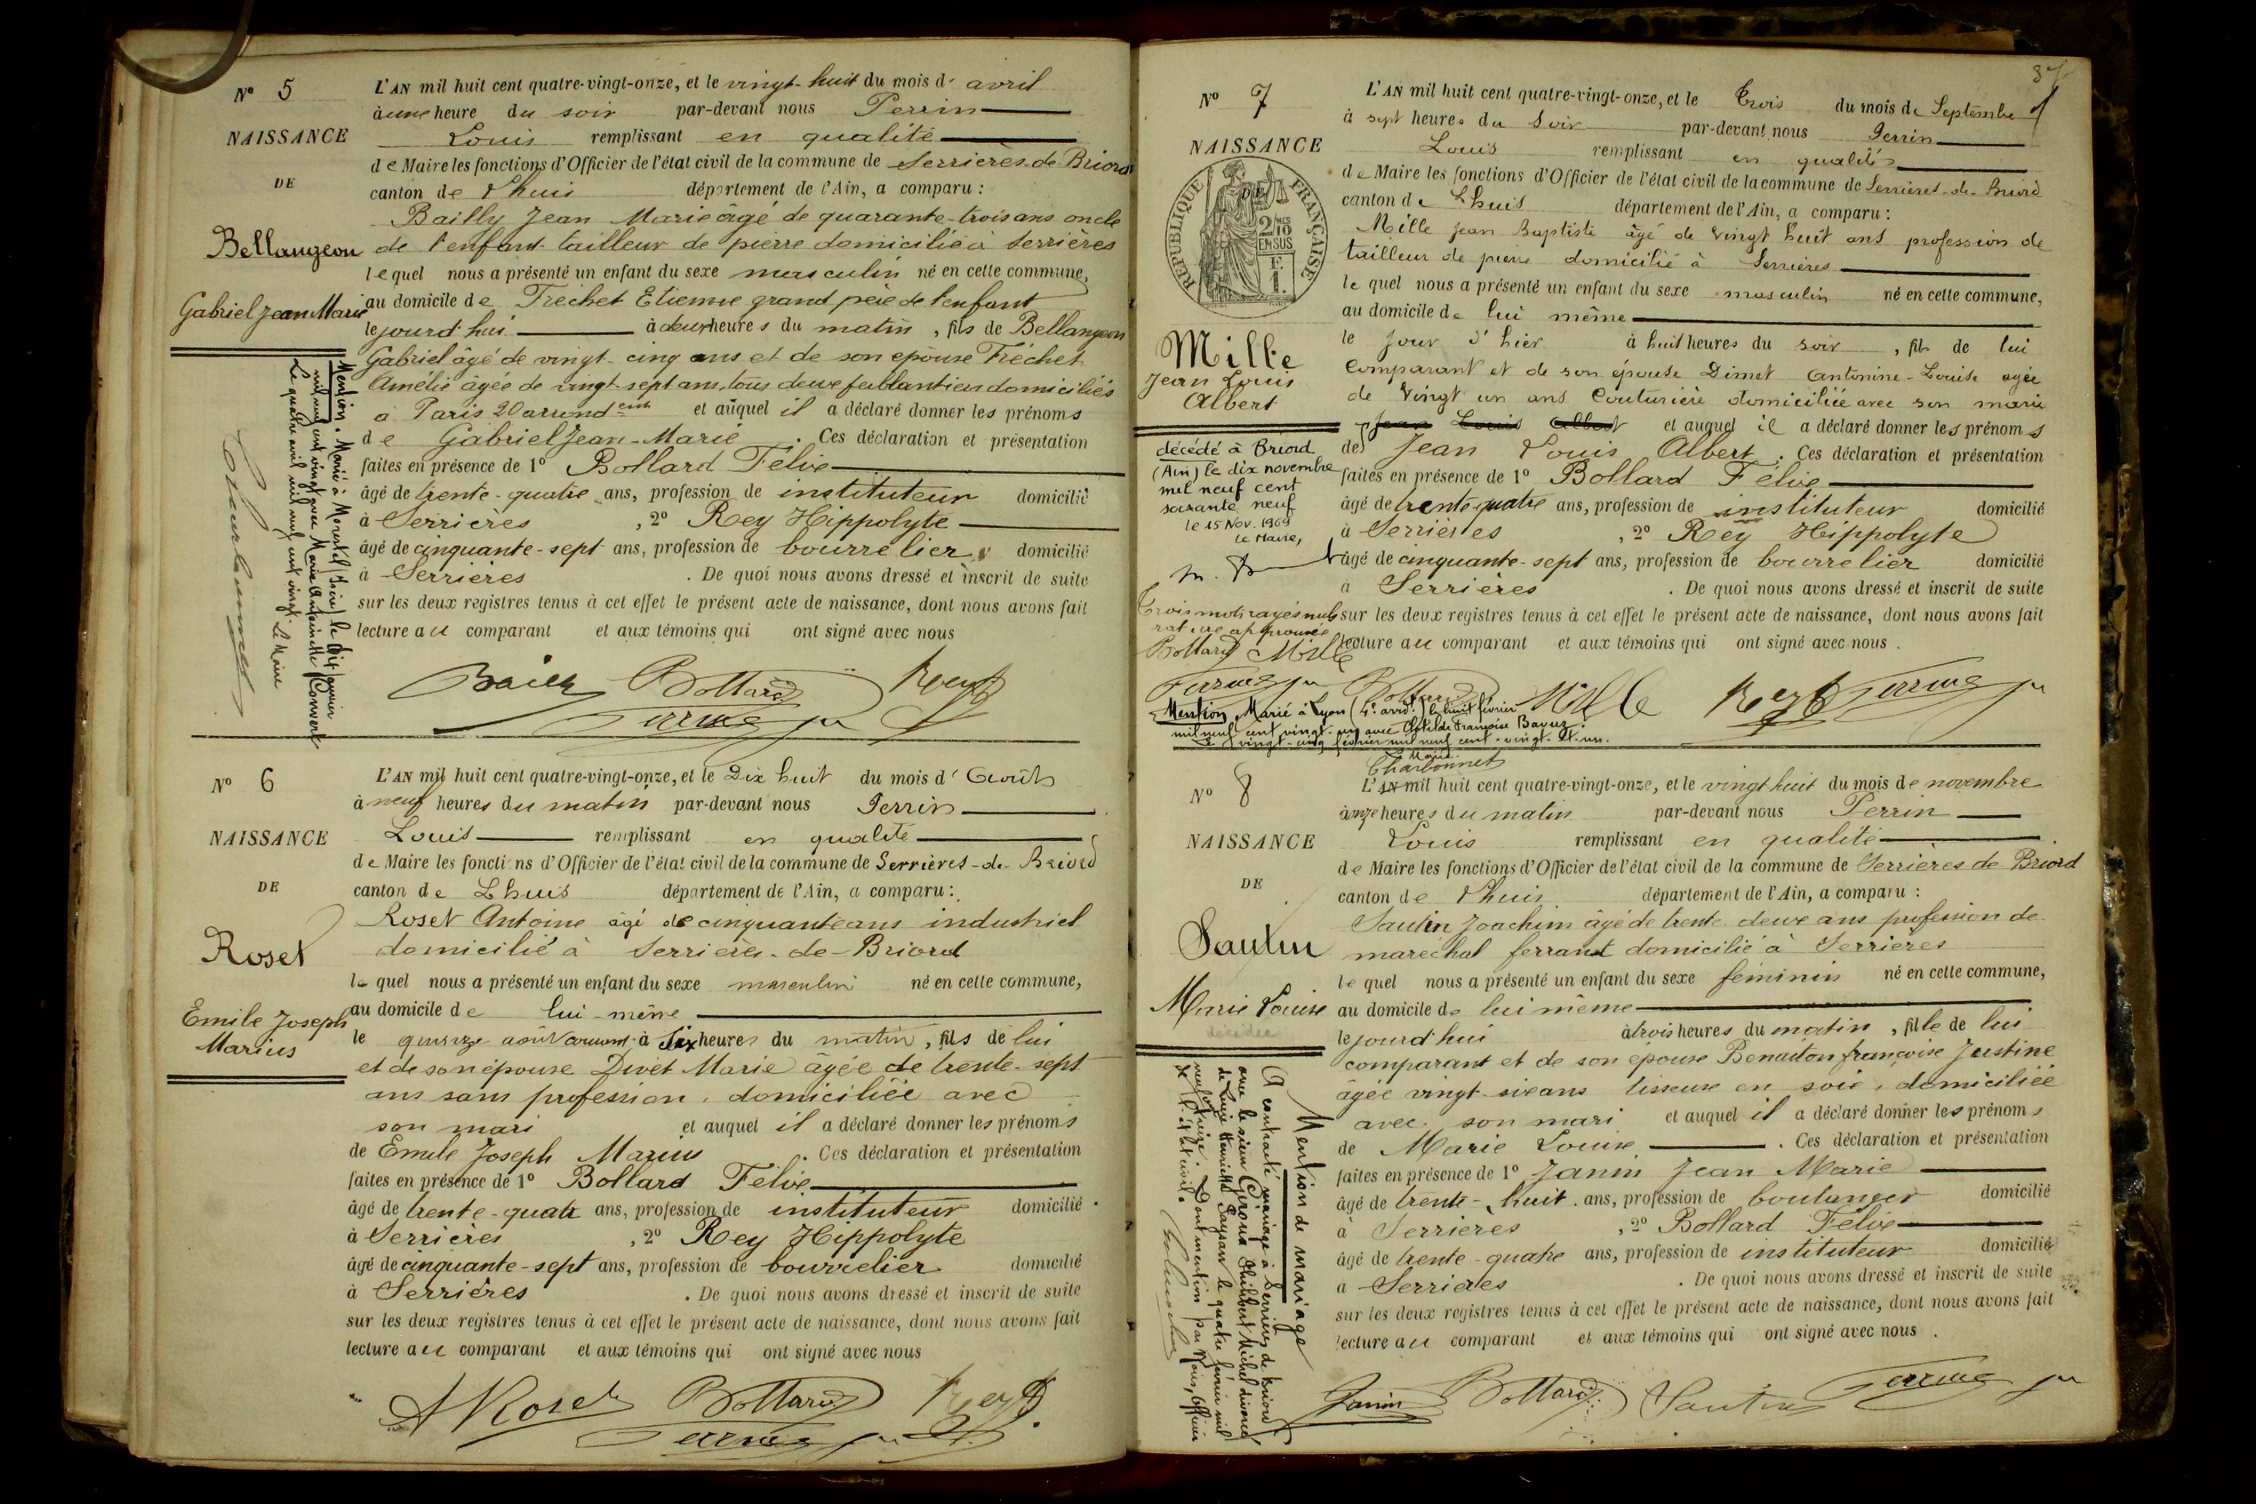 N° 5
NAISSANCE
DE
Bellangeon
Gabriel Jean Marie
L'AN mil huit cent quatre-vingt-onze, et le vingt-huit du mois d' avril
à une heure du soir par-devant nous Perrin
Louis remplissant en qualité
de Maire les fonctions d'Officier de l'état civil de la commune de Serrières-de-Briord
canton de Lhuis département de l'Ain, a comparu :
Bailly Jean Marie âgé de quarante-trois ans oncle
de l'enfant tailleur de pierre domicilié à Serrières
lequel nous a présenté un enfant du sexe masculin né en cette commune,
au domicile de Fréchet Etienne grand père de l'enfant
le jourd'hui à deux heures du matin, fils de Bellangeon
Gabriel âgé de vingt-cinq ans et de son épouse Fréchet
Amélie âgée de vingt-sept ans, tous deux ferblantiers domiciliés
à Paris 20 arrond et auquel il a déclaré donner les prénoms
de Gabriel Jean-Marie. Ces déclaration et présentation
faites en présence de 1° Bollard Félix
âgé de trente-quatre ans, profession de instituteur domicilié
à Serrières, 2° Rey Hippolyte
âgé de cinquante-sept ans, profession de bourrelier domicilié
à Serrières. De quoi nous avons dressé et inscrit de suite
sur les deux registres tenus à cet effet le présent acte de naissance, dont nous avons fait
lecture au comparant et aux témoins qui ont signé avec nous
Mention. Marié à Morestel (Isère) le dix janvier
mil neuf cent vingt avec Marie Antoinette Convert
Le quatre avril mil neuf cent vingt. Le Maire
Charbonnet
Bollard Rey H
Perrin
N° 6
NAISSANCE
DE
Roset
Emile Joseph
Marius
L'AN mil huit cent quatre-vingt-onze, et le Dix huit du mois d' Août
à neuf heures du matin par-devant nous Perrin
Louis remplissant en qualité
de Maire les fonctions d'Officier de l'état civil de la commune de Serrières-de-Briord
canton de Lhuis département de l'Ain, a comparu :
Roset Antoine âgé de cinquante ans industriel
domicilié à Serrières-de-Briord
lequel nous a présenté un enfant du sexe masculin né en cette commune,
au domicile de lui-même
le quinze août courant à six heures du matin, fils de lui
et de son épouse Divet Marie âgée de trente-sept
ans sans profession, domiciliée avec
son mari et auquel il a déclaré donner les prénoms
de Emile Joseph Marius. Ces déclaration et présentation
faites en présence de 1° Bollard Félix
âgé de trente-quatre ans, profession de instituteur domicilié
à Serrières, 2° Rey Hippolyte
âgé de cinquante-sept ans, profession de bourrelier domicilié
à Serrières. De quoi nous avons dressé et inscrit de suite
sur les deux registres tenus à cet effet le présent acte de naissance, dont nous avons fait
lecture au comparant et aux témoins qui ont signé avec nous
A Roset Bollard Rey H
Perrin
37
N° 7
NAISSANCE
DE
RÉPUBLIQUE FRANÇAISE
2/10 EN SUS
Mille
Jean Louis
Albert
décédé à Briord
(Ain) le dix novembre
mil neuf cent
soixante neuf
le 15 Nov. 1969
Le Maire,
Trois mots rayés nuls
rature approuvée
Bollard Mille
L'AN mil huit cent quatre-vingt-onze, et le Trois du mois de Septembre
à sept heures du Soir par-devant nous Perrin
Louis remplissant en qualité
de Maire les fonctions d'Officier de l'état civil de la commune de Serrières-de-Briord
canton de Lhuis département de l'Ain, a comparu :
Mille Jean Baptiste âgé de vingt huit ans profession de
tailleur de pierre domicilié à Serrières
le quel nous a présenté un enfant du sexe masculin né en cette commune,
au domicile de lui même
le jour d'hier à huit heures du soir, fils de lui
comparant et de son épouse Dimet Antonine-Louise agée
de vingt un ans Couturière domiciliée avec son marie
Jean Louis Albert et auquel il a déclaré donner les prénoms
de Jean Louis Albert. Ces déclaration et présentation
faites en présence de 1° Bollard Félix
âgé de trente-quatre ans, profession de instituteur domicilié
à Serrières, 2° Rey Hippolyte
âgé de cinquante-sept ans, profession de bourrelier domicilié
à Serrières. De quoi nous avons dressé et inscrit de suite
sur les deux registres tenus à cet effet le présent acte de naissance, dont nous avons fait
lecture au comparant et aux témoins qui ont signé avec nous.
Perrin Bollard Mille Rey H Perrin
Mention, Marié à Lyon (4e arrdt) le huit février
mil neuf cent vingt-un avec Clotilde Françoise
Le vingt-cinq février mil neuf cent vingt-et-un.
Charbonnet
N° 8
NAISSANCE
DE
Sautin
Marie Louise
décédée
L'AN mil huit cent quatre-vingt-onze, et le vingt huit du mois de novembre
à onze heures du matin par-devant nous Perrin
Louis remplissant en qualité
de Maire les fonctions d'Officier de l'état civil de la commune de Serrières de Briord
canton de Lhuis département de l'Ain, a comparu :
Sautin Joachim âgé de trente deux ans profession de
maréchal ferrant domicilié à Serrières
lequel nous a présenté un enfant du sexe féminin né en cette commune,
au domicile de lui même
le jourd'hui à trois heures du matin, fille de lui
comparant et de son épouse Benaiton françoise Justine
âgée vingt-six ans tisseuse en soie, domiciliée
avec son mari et auquel il a déclaré donner les prénoms
de Marie Louise. Ces déclaration et présentation
faites en présence de 1° Janin Jean Marie
âgé de trente-huit ans, profession de boulanger domicilié
à Serrières, 2° Bollard Félix
âgé de trente-quatre ans, profession de instituteur domicilié
à Serrières. De quoi nous avons dressé et inscrit de suite
sur les deux registres tenus à cet effet le présent acte de naissance, dont nous avons fait
lecture au comparant et aux témoins qui ont signé avec nous.
Mention de mariage
A contracté mariage à Serrières de Briord
avec le sieur Girona Philibert Michel divorcé
de Luize Henriette Paysan le quatre février mil
neuf treize. Dont mention par Nous, Officier
de l'état civil.
Janin Bollard Sautin Perrin